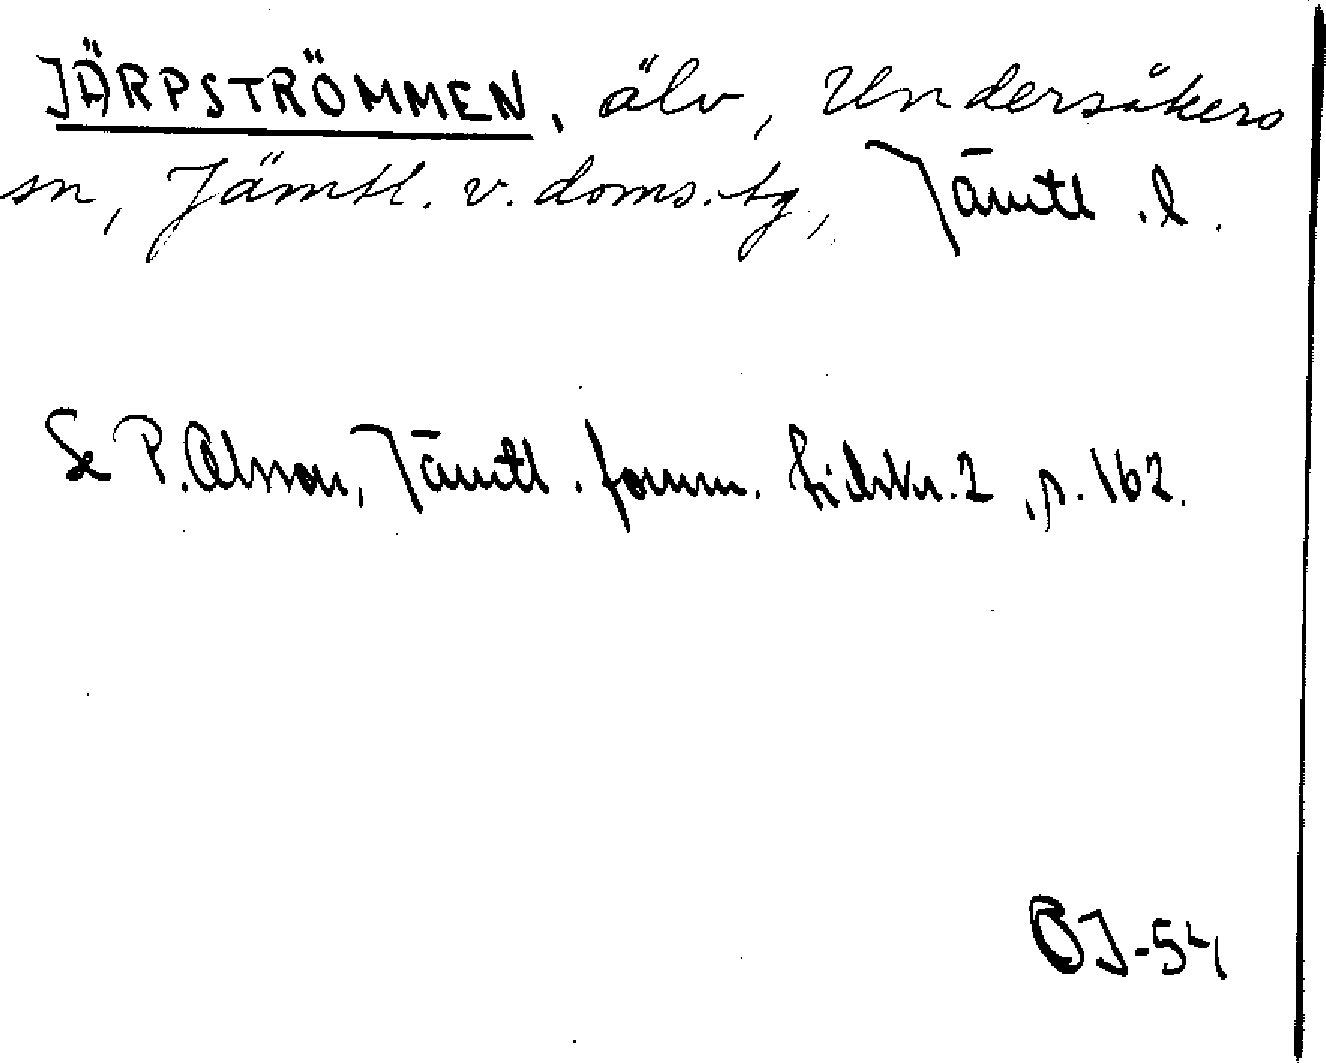 JÄRPSTRÖMMEN, älv, Undersåkers
sn, Jämtl. v. doms.tg., Jämtl. l.
Se P. Olsson, Jämtl. fornm. tidskr. 2, s. 162.
ÖJ-54